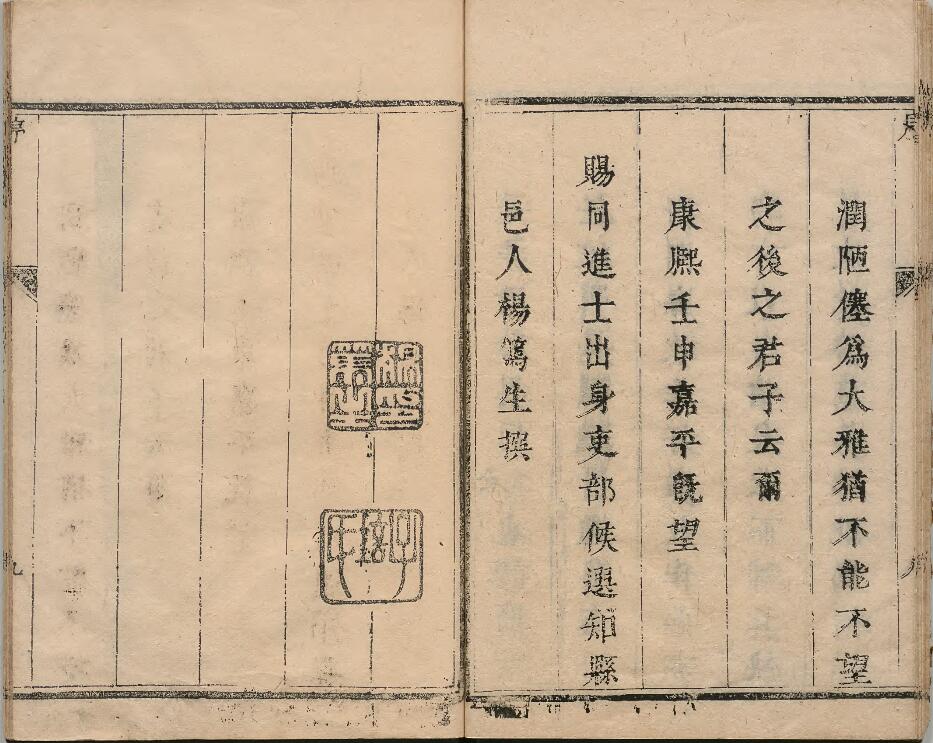 潤陋僿爲大雅猶不能不望
之後之君子云爾
康熙壬申嘉平旣望
賜同進士出身吏部候選知縣
邑人楊篤生撰
序
九